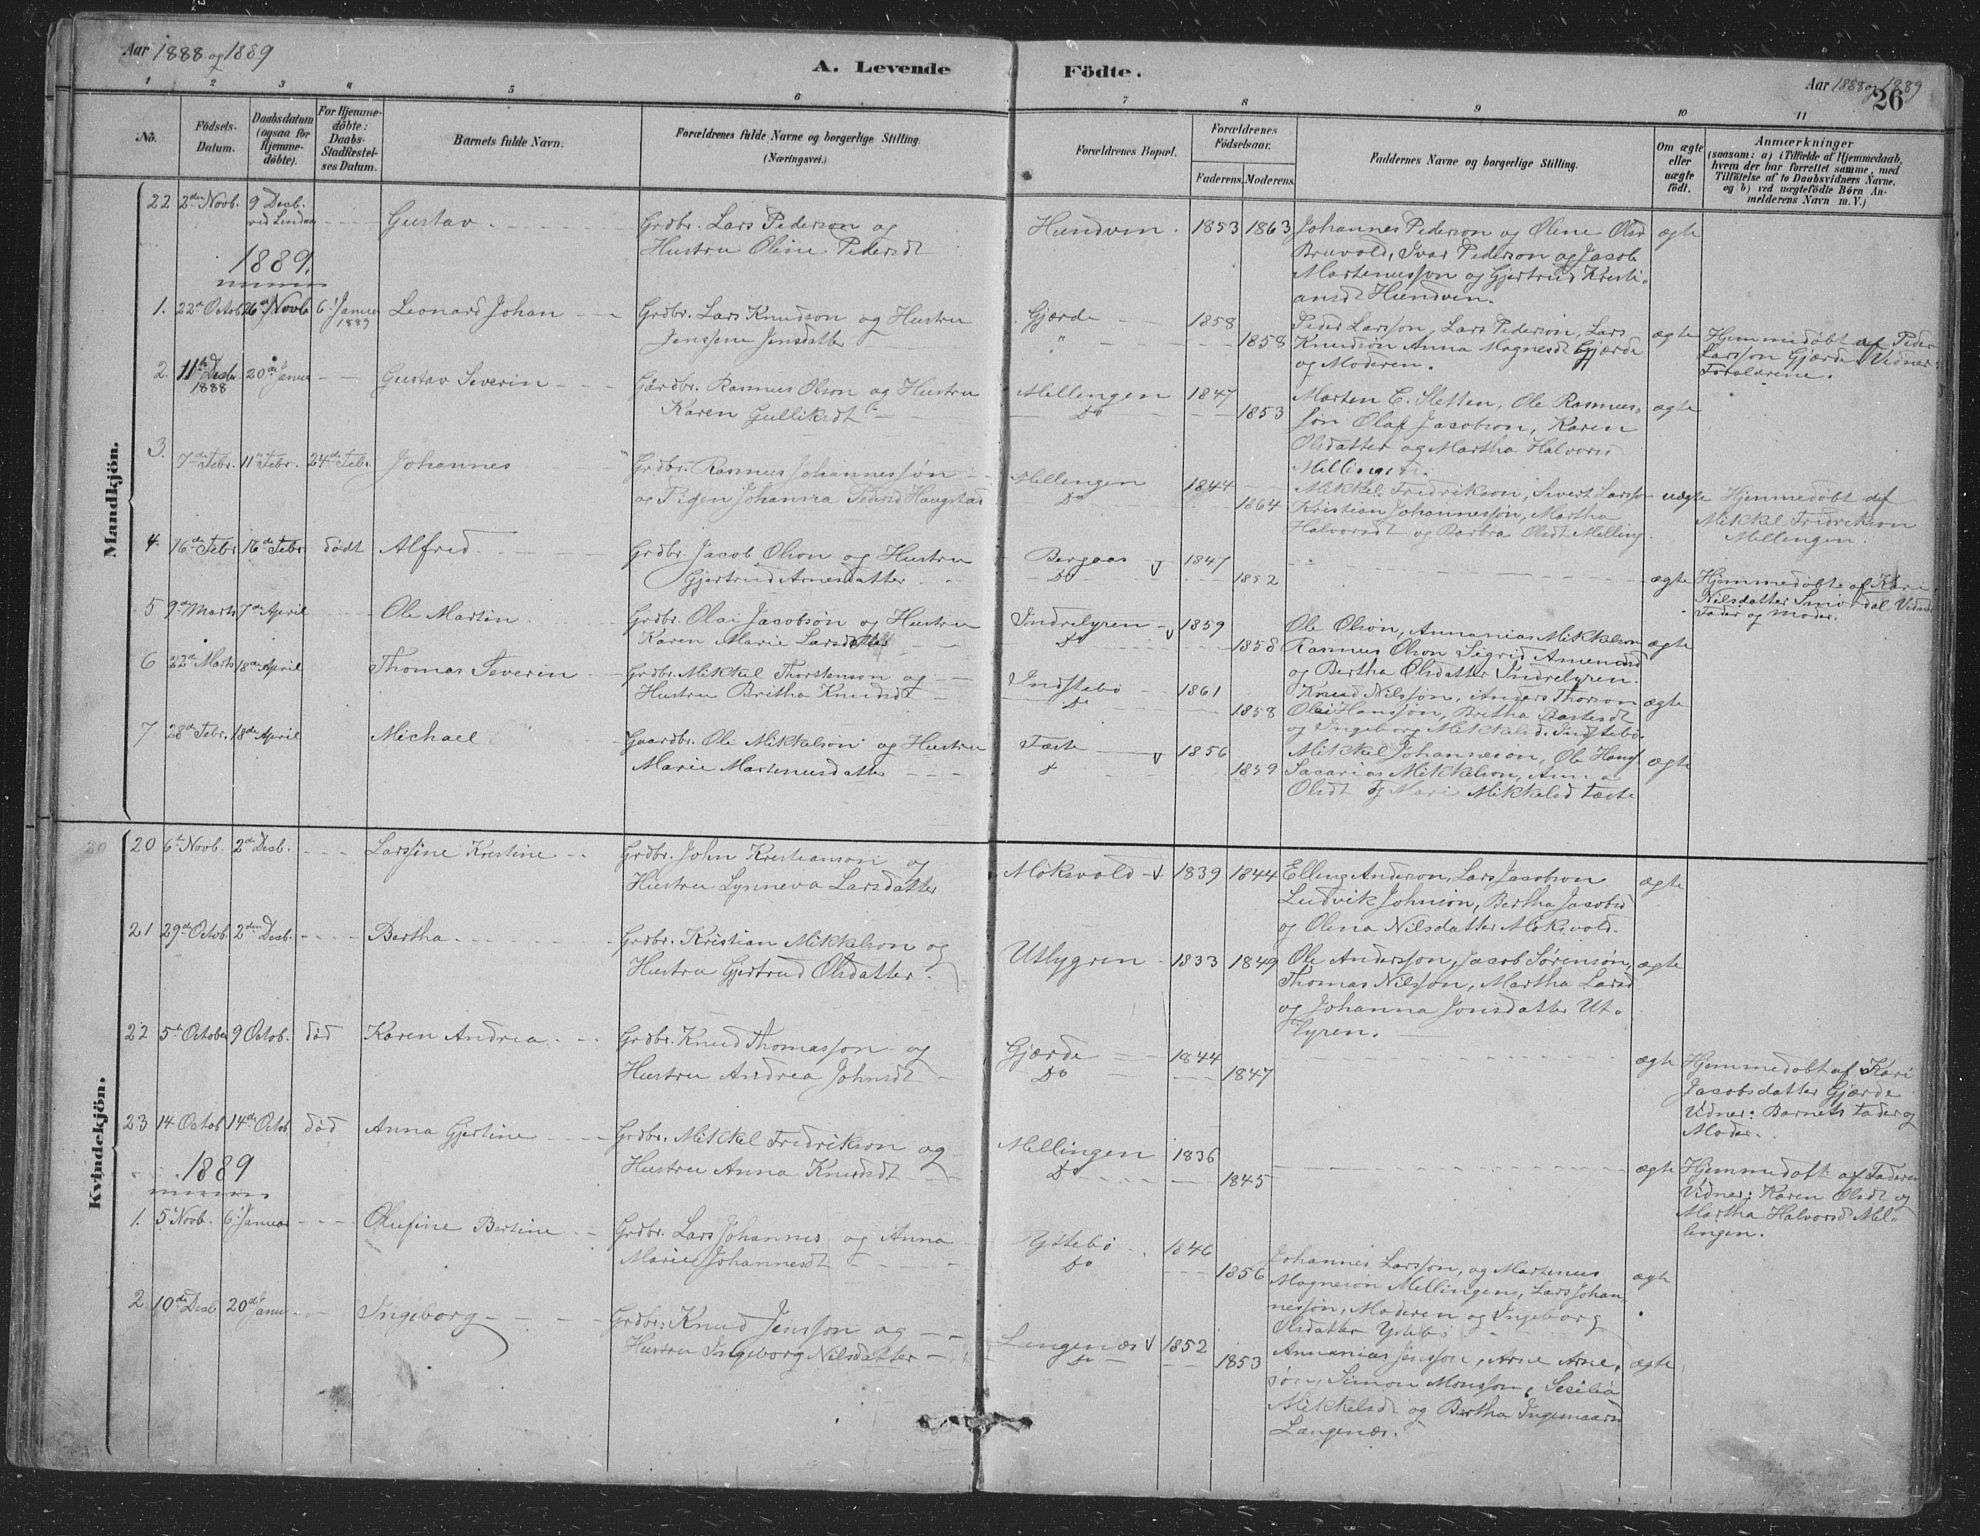 Aar 1888 og 1889
A. Levende Födte.
Aar 1888 og 1889
26
1 2 3 4 5 6 7 8 9 10 11
No.
Födsels-Datum.
Daabsdatum (ogsaa for Hjemmedöbte).
For Hjemmedöbte: Daabs-Stadfæstelses Datum.
Barnets fulde Navn.
Forældrenes fulde Navne og borgerlige Stilling.
(Næringsvei.)
Forældrenes Bopæl.
Forældrenes Födselsaar.
Faderens. Moderens.
Faddernes Navne og borgerlige Stilling.
Om ægte eller uægte födt.
Anmærkninger
(saasom: a) i Tilfælde af Hjemmedaab, hvem der har forrettet samme, med Tilföielse af to Daabsvidners Navne, og b) ved uægtefödte Börn Anmelderens Navn m. V.)
Mandkjön.
22 2den Novb. 9 Decb. ved Lindaas Gustav Grdbr. Lars Pederson og Hundvin 1853 1863 Johannes Pederson og Olene Olsd ægte
Hustru Oline Pedersdt Bruvold, Ivar Pederson og Jacob
Martenussøn og Gjertrud Kristi-
ansdt Hundvin.
1889.
1. 22de Octob 26de Novb 6 Januar 1889 Leonard Johan Grdbr. Lars Knudson og Hustru Gjærde 1858 Peder Larssøn, Lars Pederson, Lars ægte Hjemmedøbt af Peder
Jenssine Jensdatter " 1858 Knudsøn Anna Magnesdt Gjærde Larssøn Gjærde Vidner:
og Moderen. Forældrene.
2. 11te Decb 1888 20de Januar Gustav Severin Gardbr. Rasmus Olson og Hustru Mellingen 1847 Marten E. Sletten, Ole Rasmus- ægte
Karen Gulliksdt Do 1853 søn Olaf Jacobson, Karen
Olsdatter og Martha Halvorsd
Millingen.
3. 7de Febr. 11te Febr. 24de Febr. Johannes Grdbr. Rasmus Johannessøn Mellingen 1844 Mikkel Fredrikson, Sivert Larsso uægte Hjemmedøbt af
og Pigen Johanna Pedersd Haugstad Do 1864 Kristian Johannessøn, Martha Mikkel Fredrikson
Halvorsdt og Barbra Olsdt Melling. Mellingen.
4. 16de Febr 16de Febr. dødt Alfred Grdbr. Jacob Olson og Hustru Bergaas 1847
Gjertrud Arnesdatter Do 1852 ægte Hjemmedøbte af Kari
Nilsdatter Vidner
Fader og Moder.
5 9de Marts 7de April Ole Martin Grdbr. Olai Jacobsøn og Hustru Indrelyren 1859 Ole Olsøn, Annanias Mikkelson ægte
Karen Marie Larsdatter Do 1858 Rasmus Olson Sigrid Amundsd
og Bertha Olsdatter Indrelyren.
6 22de Marts 18de April Thomas Severin Grdbr. Mikkel Thorstenson og Indstebø 1861 Knud Nilssøn, Anders Thorson ægte
Hustru Britha Knudsdt Do 1858 Olai Hanssøn, Britha
og Ingeborg Mikkelsd. Indstebø.
7 28de Febr. 18de April Michael Gaardbr. Ole Mikkelsøn og Hustru Tæste 1856 Mikkel Johanneson, Ole Hans ægte
Marie Martenusdatter Do 1859 Sacarias Mikkelson, Anna
Olsdt og Mari Mikkelsd Tæste
Kvindekjön.
20 6te Novb. 2de Decb. Larssine Kristine Grdbr. John Kristianson og Moksvold 1839 1844 Elling Anderson, Lars Jacobson ægte
Hustru Synneva Larsdatter Ludvik Johnson, Bertha Jacobsd
og Olena Nilsdatter Moksvold.
21 29de Octob. 2den Decb. Bertha Grdbr. Kristian Mikkelson og Utlygren 1833 1849 Ole Anderssøn, Jacob Sørensøn, ægte
Hustru Gjertrud Olsdatter Thomas Nilssøn, Martha Larsd
og Johanna Jonsdatter Ut-
lyren.
22 5te October 9 Octob. død Karen Andrea Grdbr. Knud Thomassøn og Gjærde 1844 ægte Hjemmedøbt af Kari
Hustru Andrea Johnsdt Do 1847 Jacobsdatter Gjærde
Vidner: Barnets Fader og
Moder.
23 14 Octob 14de Octob død Anna Gjertine Grdbr. Mikkel Fredrikson og Mellingen 1836
Hustru Anna Knudsdt Do 1845 ægte Hjemmedøbt af Faderen
Vidner: Karen Olsdt og
Martha Halvorsd Mel-
lingen.
1889
1. 5 Novb. 6 Januar Olufine Bertine Grdbr. Lars Johannes og Anna Ystebø 1846 Johannes Larsson, og Martenus ægte
Marie Johannesdt Do 1856 Magneson Mellingen, Lars Johan-
nessøn, Moderen og Ingeborg
Olsdatter Ystebø
2. 10de Decb 20de Januar Ingeborg Grdbr. Knud Jenssøn og Lengenæs 1852 Annanias Jenssøn, Arne Arne- ægte
Hustru Ingeborg Nilsdatter Do 1853 søn, Simon Monssøn, Secilia
Mikkelsdt og Bertha Ingemaars
Langenæs.